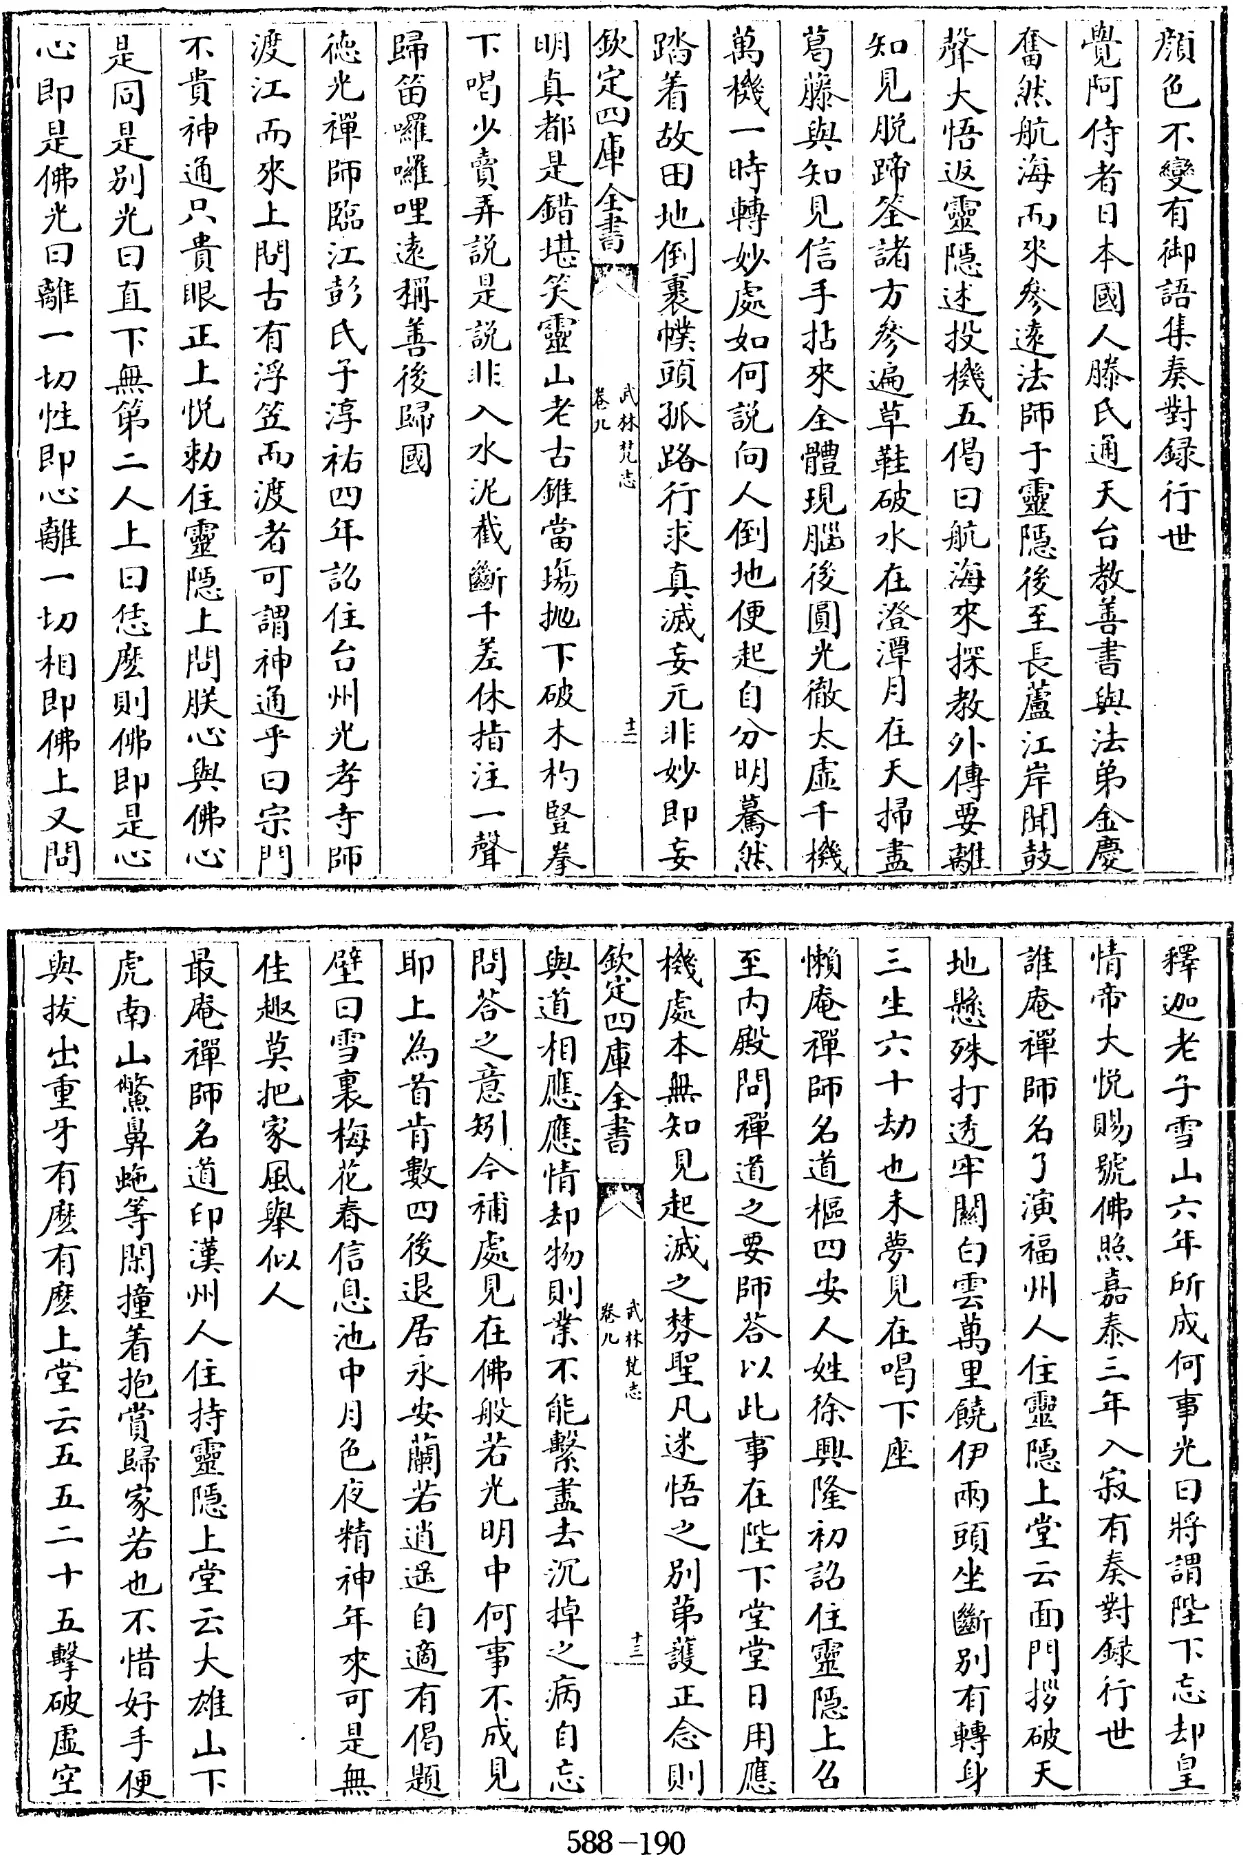 顔色不變有御語集奏對録行世
覺阿侍者日本國人滕氏通天台教善書與法弟金慶
奮然航海而來參遠法師于靈隱後至長蘆江岸聞鼓
聲大悟返靈隱述投機五偈曰航海來探教外傳要離
知見脱蹄筌諸方參遍草鞋破水在澄潭月在天掃盡
葛藤與知見信手拈來全體現腦後圓光徹太虚千機
萬機一時轉妙處如何説向人倒地便起自分明驀然
踏着故田地倒裹幞頭孤路行求真滅妄元非妙即妄
欽定四庫全書
武林梵志
卷九
十二
明真都是錯堪笑靈山老古錐當塲抛下破木杓豎拳
下喝少賣弄説是説非入水泥截斷千差休指注一聲
歸笛囉囉哩遠稱善後歸國
徳光禪師臨江彭氏子淳祐四年詔住台州光孝寺師
渡江而來上問古有浮笠而渡者可謂神通乎曰宗門
不貴神通只貴眼正上悦勅住靈隱上問朕心與佛心
是同是别光曰直下無第二人上曰恁麽則佛即是心
心即是佛光曰離一切性即心離一切相即佛上又問
釋迦老子雪山六年所成何事光曰將謂陛下忘却皇
情帝大悦賜號佛照嘉泰三年入寂有奏對録行世
誰庵禪師名了演福州人住靈隱上堂云面門拶破天
地懸殊打透牢關白雲萬里饒伊兩頭坐斷别有轉身
三生六十劫也未夢見在喝下座
懶庵禪師名道樞四安人姓徐興隆初詔住靈隱上召
至内殿問禪道之要師答以此事在陛下堂堂日用應
機處本無知見起滅之棼聖凡迷悟之别第護正念則
欽定四庫全書
武林梵志
卷九
十三
與道相應應情却物則業不能繫盡去沉掉之病自忘
問答之意矧今補處見在佛般若光明中何事不成見
耶上為首肯數四後退居永安蘭若逍遥自適有偈題
壁曰雪裏梅花春信息池中月色夜精神年來可是無
佳趣莫把家風舉似人
最庵禪師名道印漢州人住持靈隱上堂云大雄山下
虎南山鱉鼻虵等閑撞着抱賞歸家若也不惜好手便
與拔出重牙有麽有麽上堂云五五二十五擊破虚空
588-190